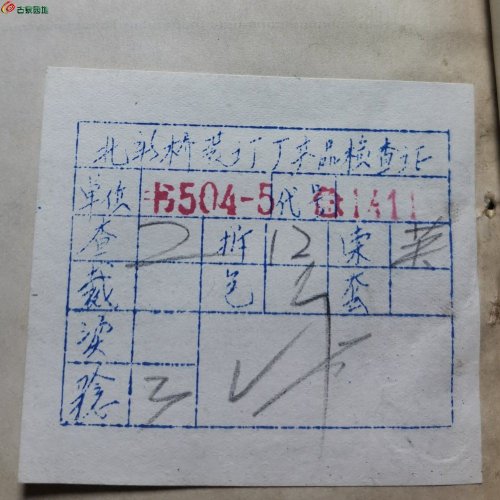 古泉园地
北新桥装订厂产品检查证
单位 B504-5 代号 1411
查 2 折 12 索 英
裁 包 套
烫
验 3